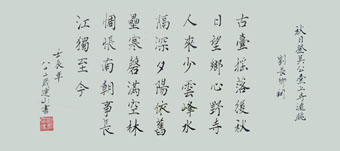 秋日登吳公臺上寺遠眺
劉長卿
古臺搖落後秋
日望鄉心野寺
人來少雲峰水
隔深夕陽依舊
壘寒磬滿空林
惆悵南朝事長
江獨至今
書